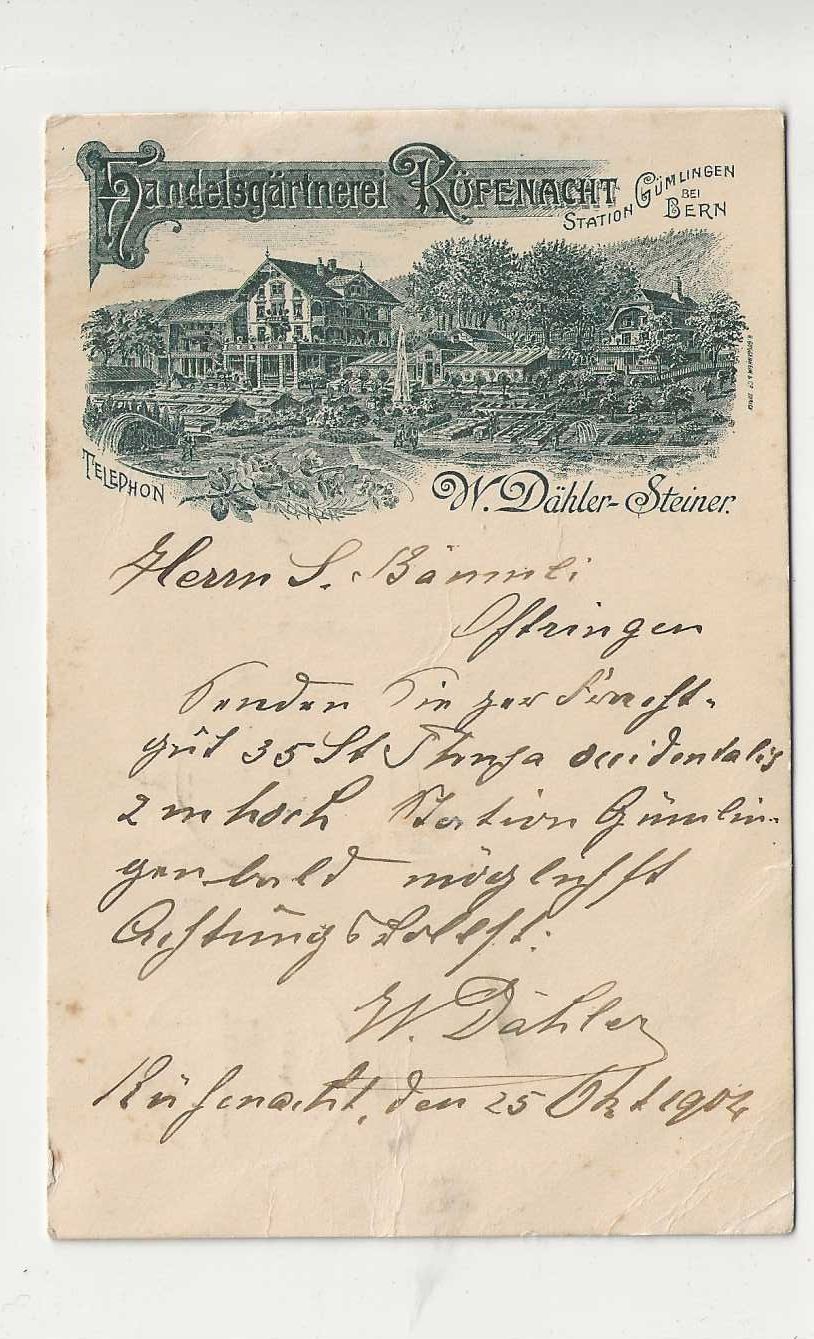 Handelsgärtnerei Rüfenacht
Station Gümlingen
bei
Bern
Telephon
W. Dähler-Steiner.
Herrn S. Bäumli
Oftringen
Senden Sie per Fracht-
gut 35 St Thuja occidentalis
2 m hoch Station Gümlin-
gen bald möglichst
Achtungsvollst:
W. Dähler
Rüfenacht, den 25 Okt 1904